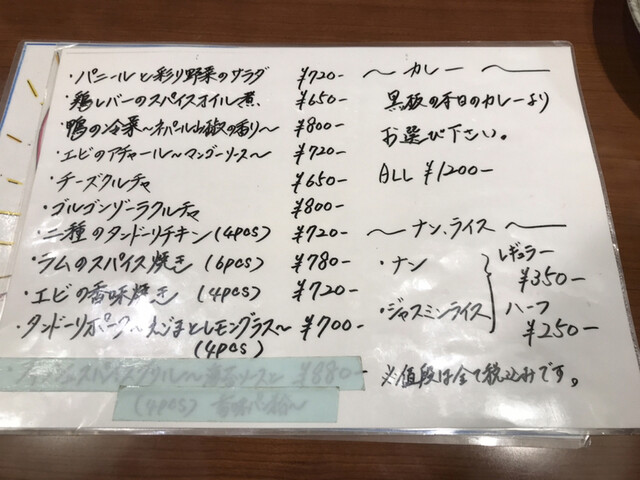 ・パニールと彩り野菜のサラダ ¥720-
・鶏レバーのスパイスオイル煮. ¥650-
・鴨の冷菜〜ネパール山椒の香り〜 ¥800-
・エビのアチャール〜マンゴーソース〜 ¥720-
・チーズクルチャ ¥650-
・ゴルゴンゾーラクルチャ ¥800-
・二種のタンドーリチキン(4pcs) ¥720-
・ラムのスパイス焼き(6pcs) ¥780-
・エビの香味焼き(4pcs) ¥720-
・タンドーリポーク〜えごまとレモングラス〜 ¥700-
(4pcs)
¥880-
(4pcs)
〜カレー〜
黒板の本日のカレーより
お選び下さい。
ALL ¥1200-
〜ナン、ライス〜
・ナン
・ジャスミンライス
レギュラー
¥350-
ハーフ
¥250-
※値段は全て税込みです。